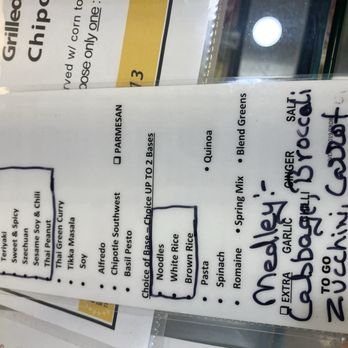 Grilled
Chipo
rved w/ corn to
oose only one :
13
Teriyaki
• Sweet & Spicy
• Szechuan
• Sesame Soy & Chili
• Thai Peanut
• Thai Green Curry
• Tikka Masala
• Soy
• Alfredo
• Chipotle Southwest
• Basil Pesto
☐ PARMESAN
Choice of Base – Choice UP TO 2 Bases
• Noodles
• White Rice
• Brown Rice
• Pasta
• Quinoa
• Spinach
• Romaine
• Spring Mix
• Blend Greens
Medley:-
☐ EXTRA GARLIC GINGER SALT
Cabbage, Broccoli
TO GO
Zucchini, Carrot